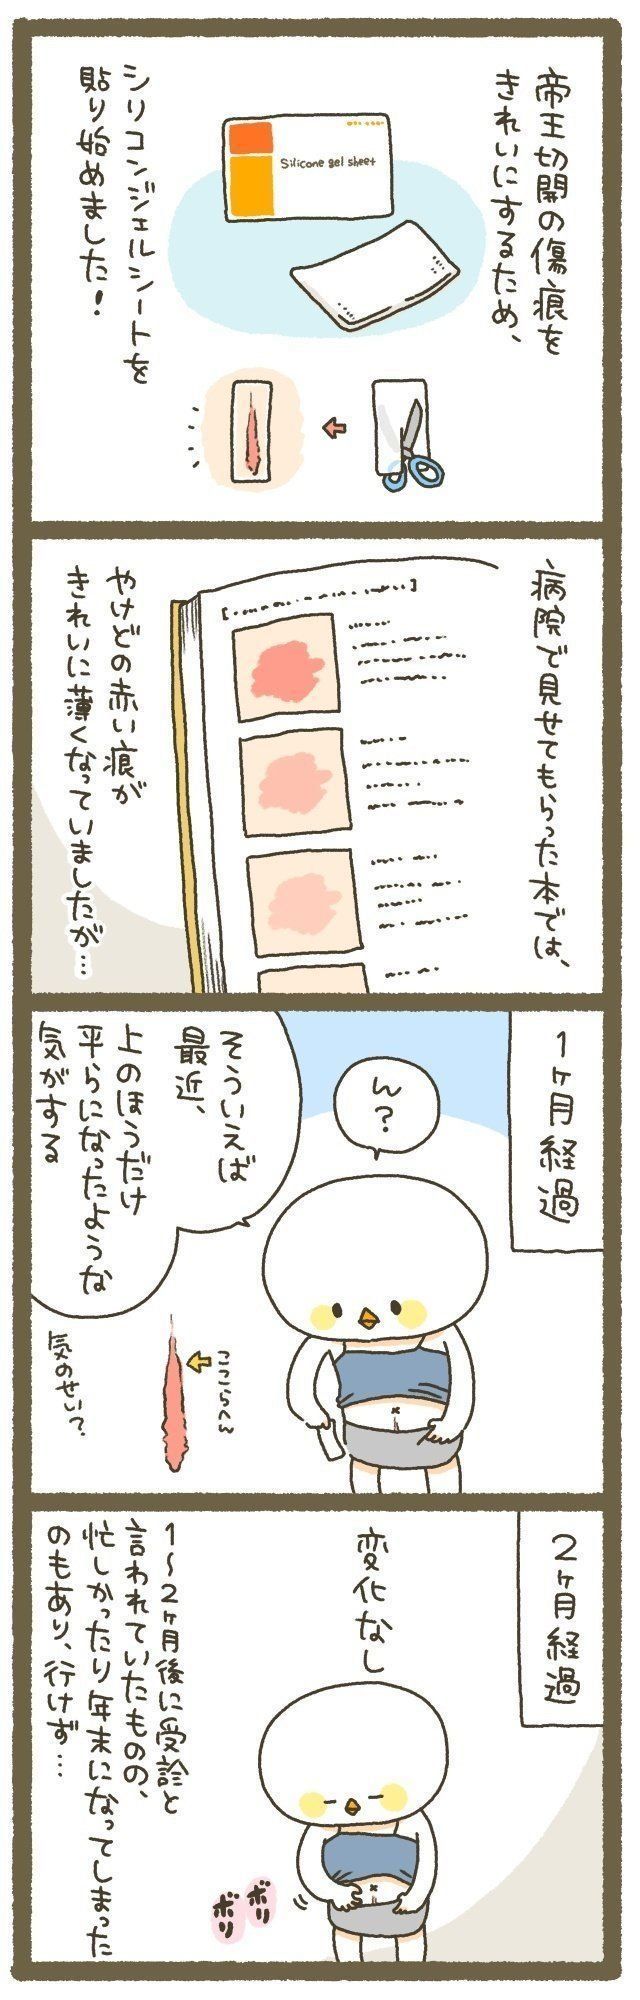 帝王切開の傷痕を
きれいにするため、
Silicone gel sheet
シリコンジェルシートを
貼り始めました!
病院で見せてもらった本では、
やけどの赤い痕が
きれいに薄くなっていましたが…
1ヶ月経過
ん?
そういえば
最近、
上のほうだけ
平らになったような
気がする
ここらへん
気のせい?
2ヶ月経過
変化なし
1〜2ヶ月後に受診と
言われていたものの、
忙しかったり年末になってしまった
のもあり、行けず…
ボリ
ボリ